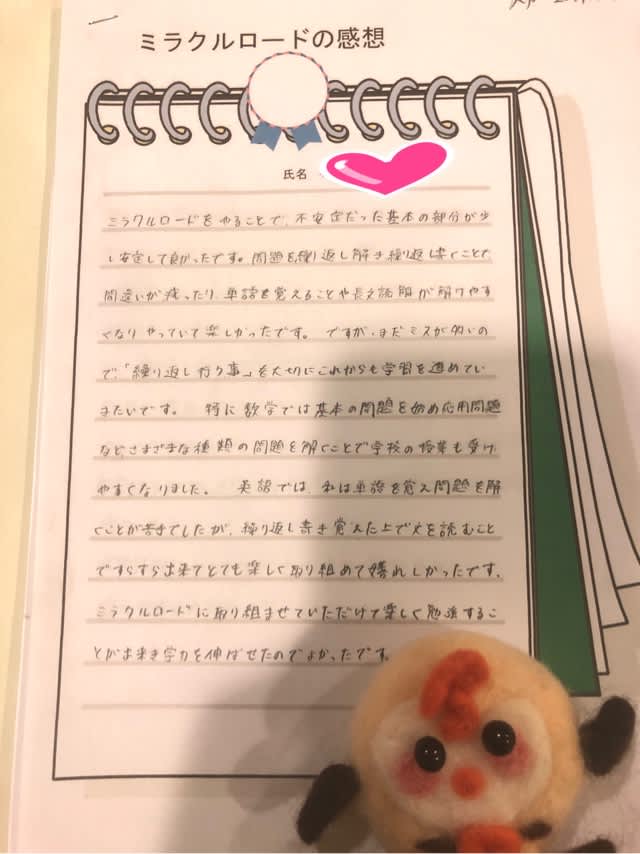 ミラクルロードの感想
氏名
ミラクルロードをやることで、不安定だった基本の部分が少
し安定して良かったです。問題を繰り返し解き繰り返し書くことで
間違いが減ったり、単語を覚えることや長文読解が解けやす
くなりやっていて楽しかったです。ですが、まだミスが多いの
で、「繰り返し行う事」を大切にこれからも学習を進めてい
きたいです。 特に数学では基本の問題を始め応用問題
など、さまざまな種類の問題を解くことで学校の授業も受け
やすくなりました。 英語では、私は単語を覚え問題を解
くことが苦手でしたが、繰り返し書き覚えた上で文を読むこと
ですらすら出来てとても楽しく取り組めて嬉しかったです。
ミラクルロードに取り組ませていただけて楽しく勉強するこ
とが出来き学力を伸ばせたのでよかったです。